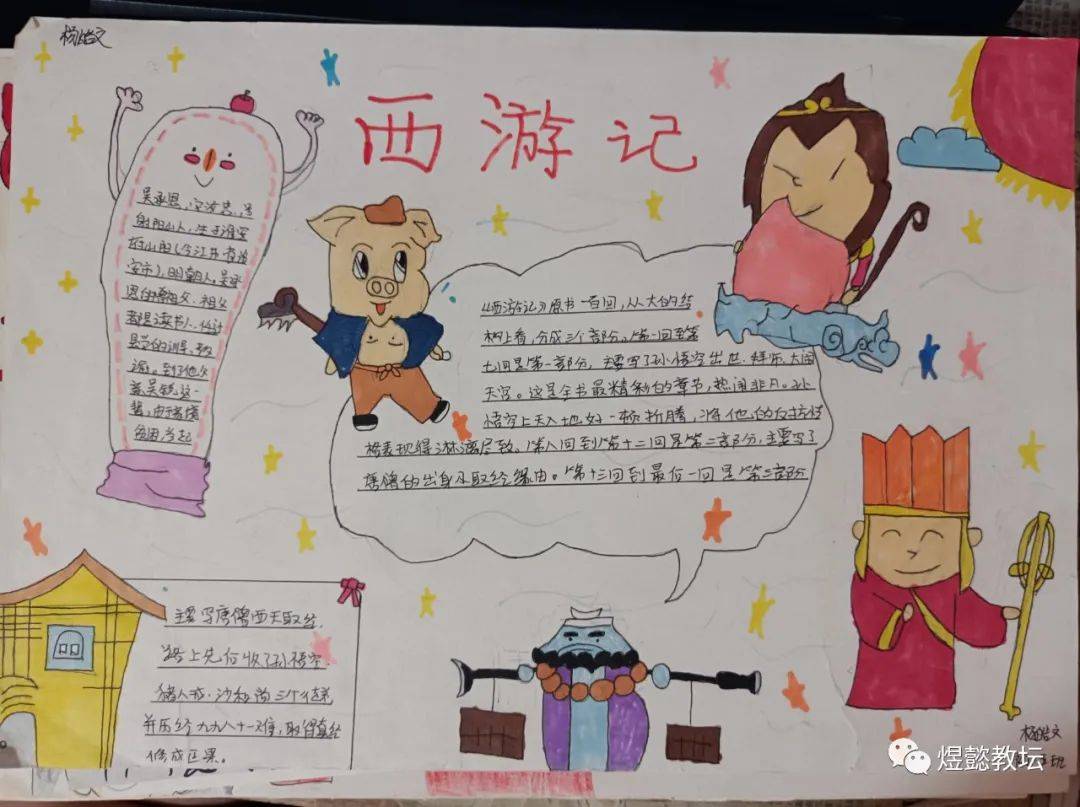 杨皓文
西游记
吴承恩，字汝忠，号
射阳山人，生于淮安
府山阳（今江苏省淮
安市），明朝人。吴承
恩的曾祖父、祖父
都是读书人，
的训导、教
谕。到了他父
亲吴锐这一
辈，由于家境
贫困，当起
《西游记》原书一百回，从大的结
构上看，分成三个部分。第一回至第
七回是第一部分，主要写了孙悟空出世、拜师、大闹
天宫。这是全书最精彩的章节，热闹非凡。孙
悟空上天入地好一顿折腾，将他的反抗性
格表现得淋漓尽致。第八回到第十二回是第二部分，主要写了
唐僧的出身及取经缘由。第十三回到最后一回是第三部分
主要写唐僧西天取经，
路上先后收了孙悟空
猪八戒、沙和尚三个徒弟
并历经九九八十一难，取得真经
修成正果。
杨皓文
班
煜懿教坛